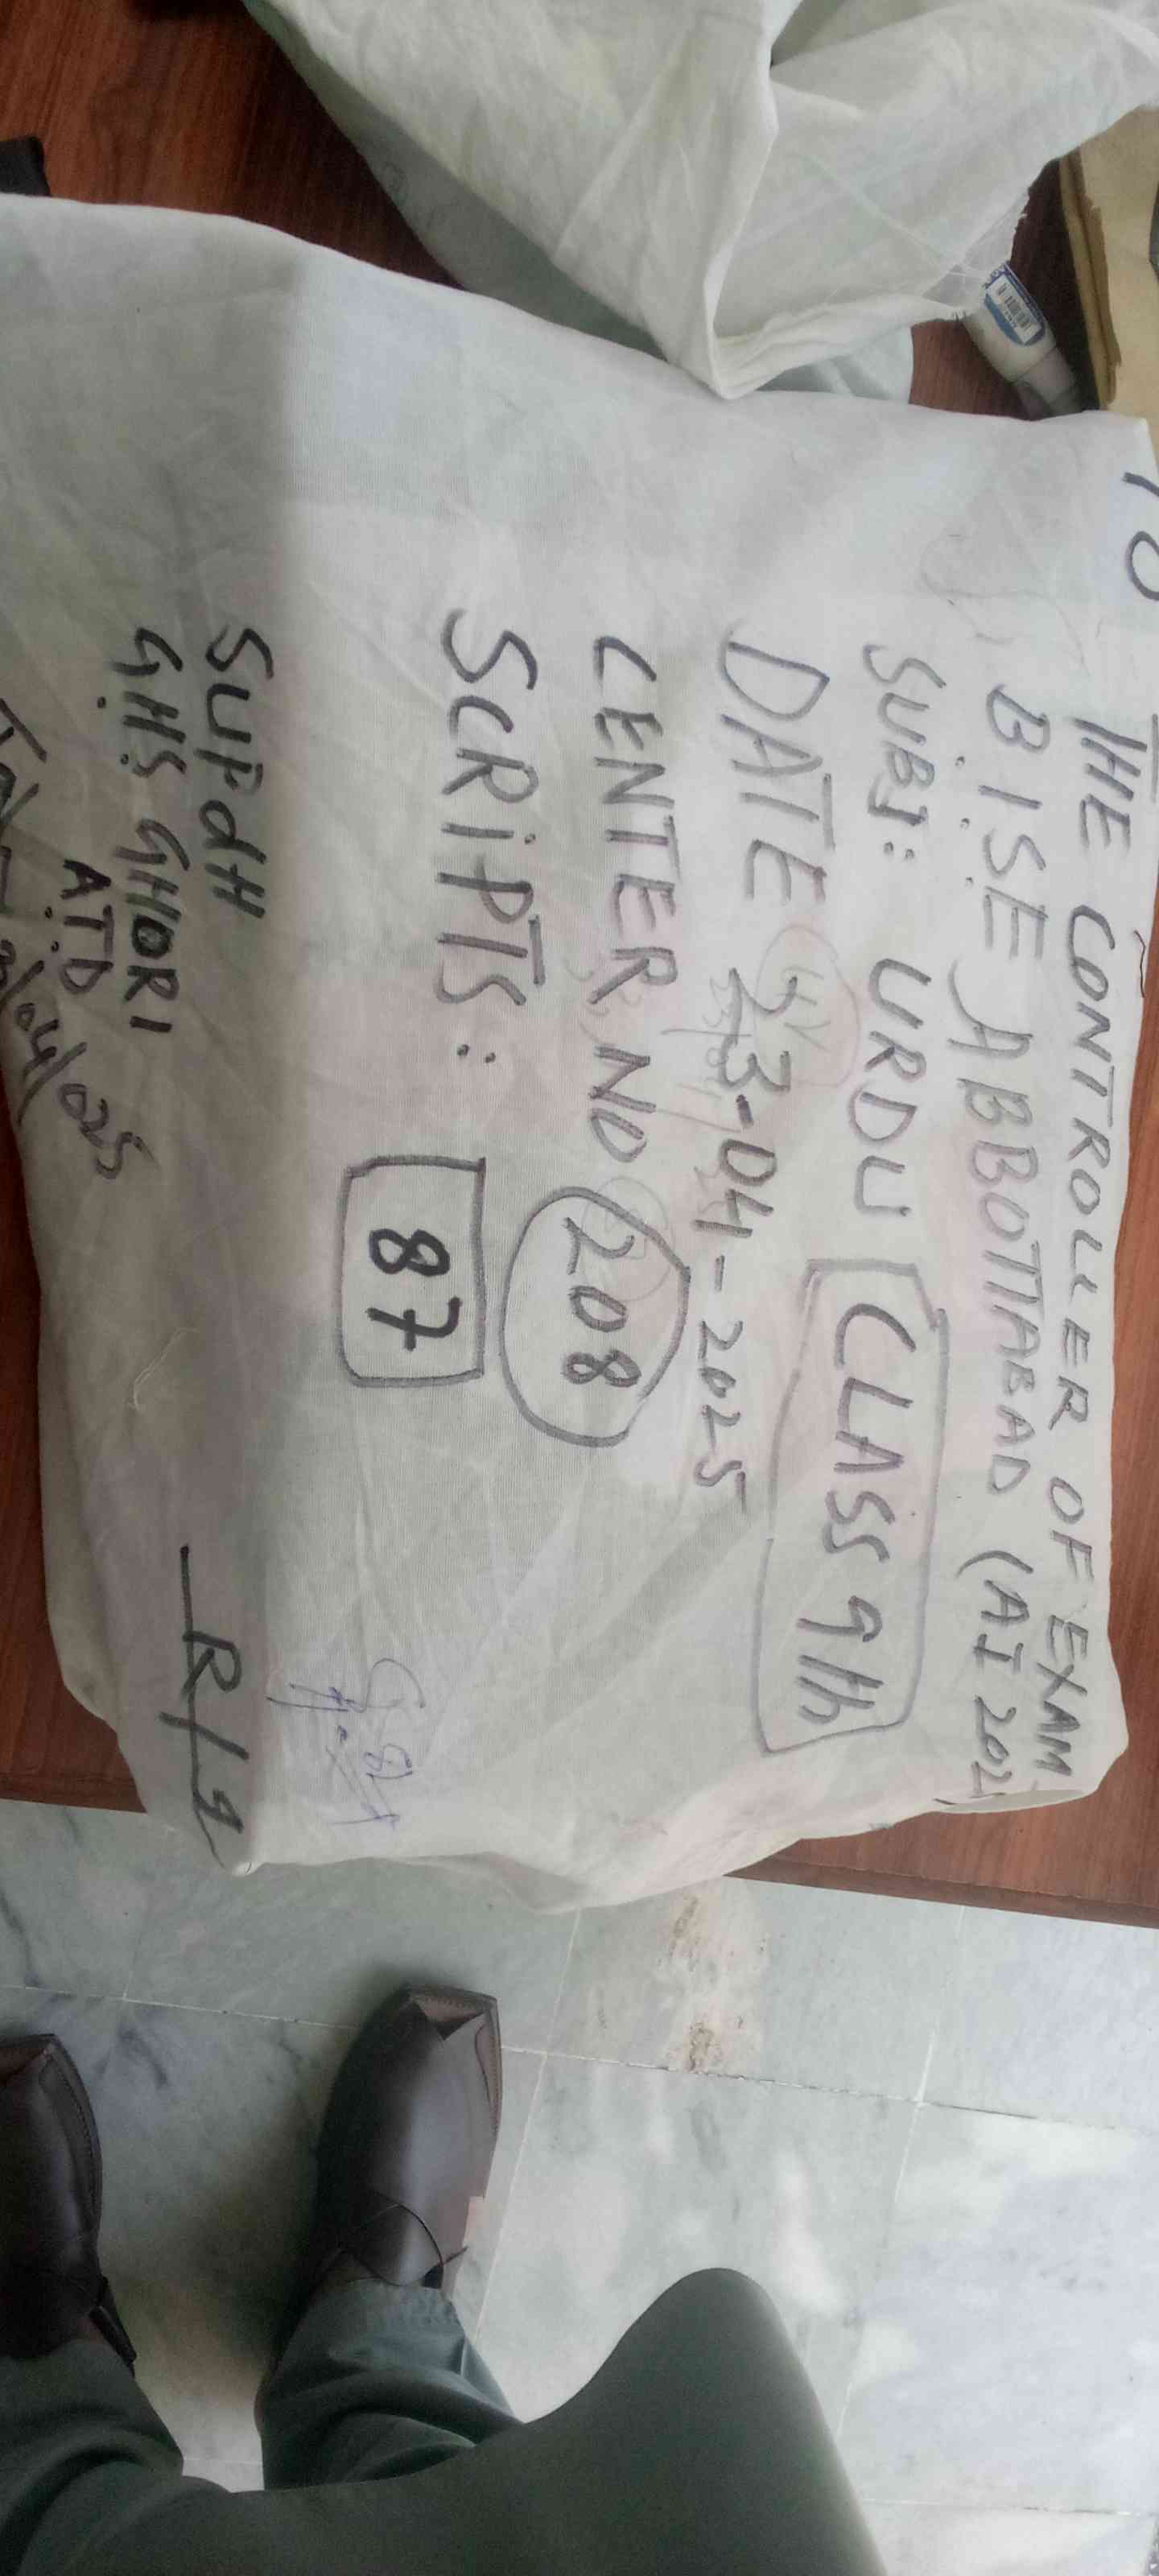 TO
THE CONTROLLER OF EXAM
B.I.S.E ABBOTTABAD (AI 202
SUBJ: URDU CLASS 9th
DATE 23-04-2025
CENTER NO 208
SCRIPTS: 87
SUPdH
G.H.S GHORI
A.T.D
/04/025
R/1